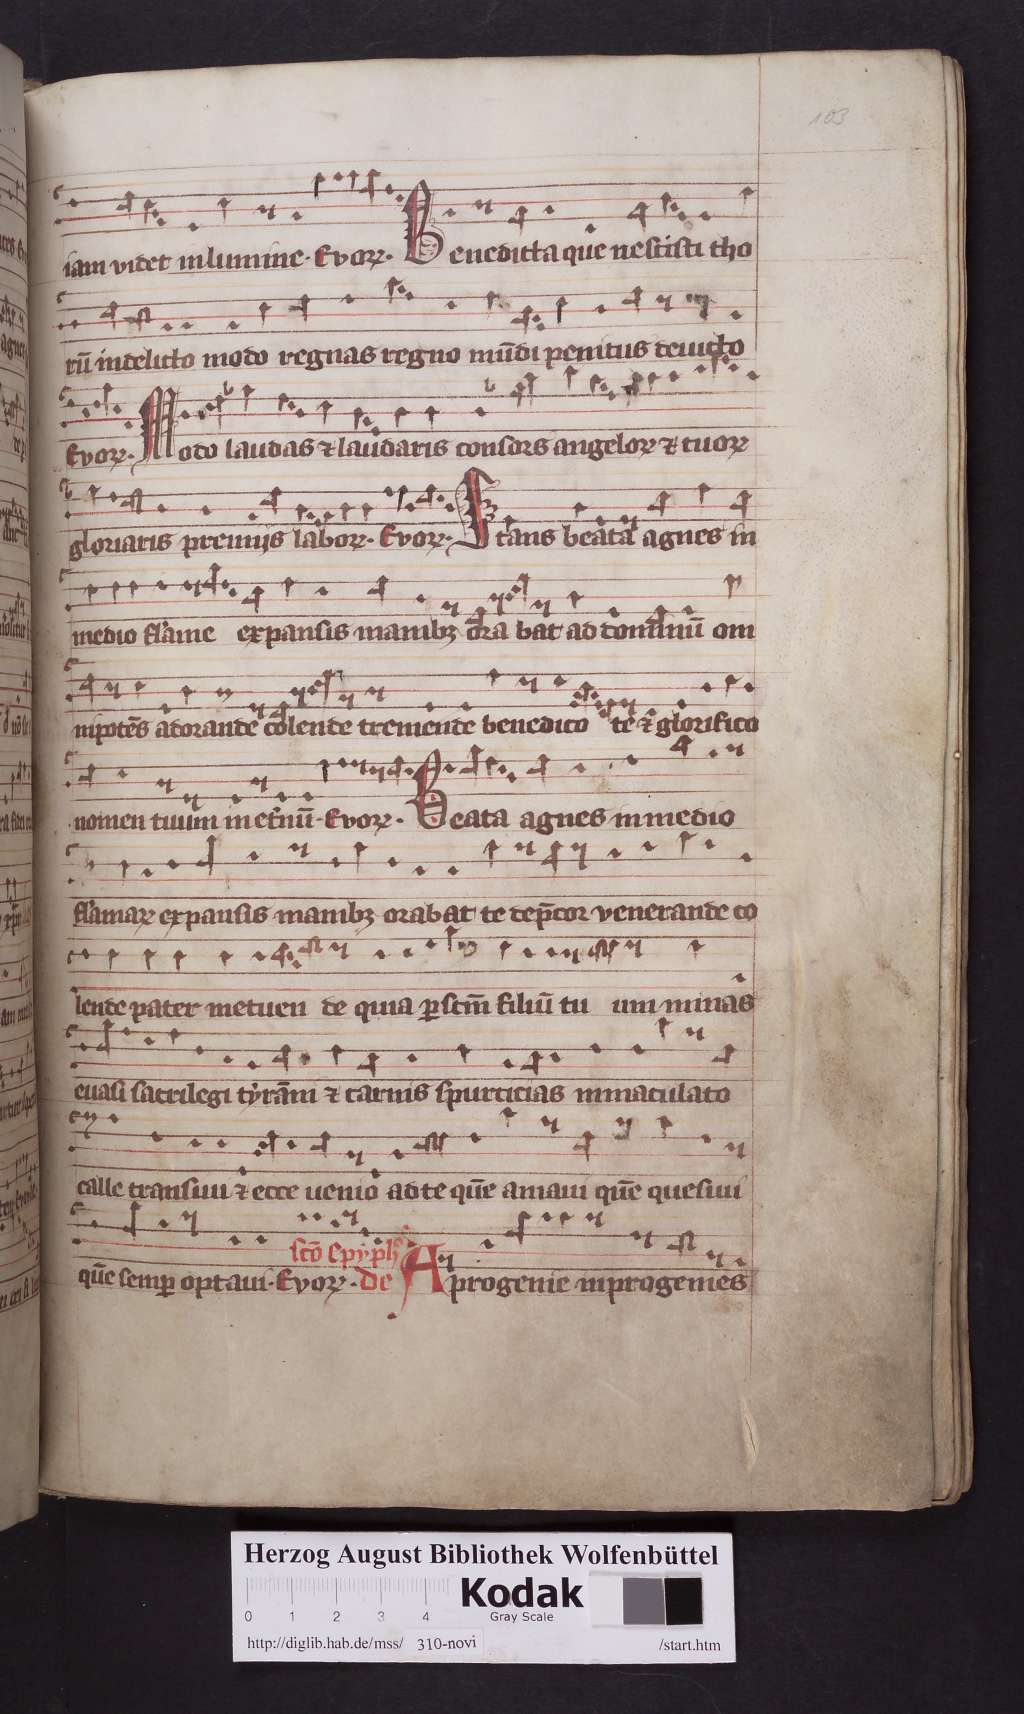 103
iam videt in lumine. Evorꝝ. Benedicta que nescisti tho
rū in delicto modo regnas regno mūdi penitus deuicto
Evorꝝ. Modo laudas ⁊ laudaris consors angelorꝝ ⁊ tuorꝝ
gloriaris premijs laborꝝ. Evorꝝ. Stans beata agnes in
medio flāme expansis manibꝫ ora bat ad dominū om
nipotēs adorande colende tremende benedico te ⁊ glorifico
nomen tuum in et̄nū. Evorꝝ. Beata agnes in medio
flāmaꝝ expansis manibꝫ orabat te dep̄cor venerande co
lende pater metuen de quia ꝑ sctm̄ filiū tu um minas
euasi sacrilegi tyrāni ⁊ carnis spurcicias inmaculato
calle transiui ⁊ ecce uenio ad te quē amaui quē quesiui
scō Epyph
quē semꝑ optaui. Evorꝝ. De A progenie in progenies
Herzog August Bibliothek Wolfenbüttel
0 1 2 3 4 Kodak
Gray Scale
http://diglib.hab.de/mss/ 310-novi /start.htm